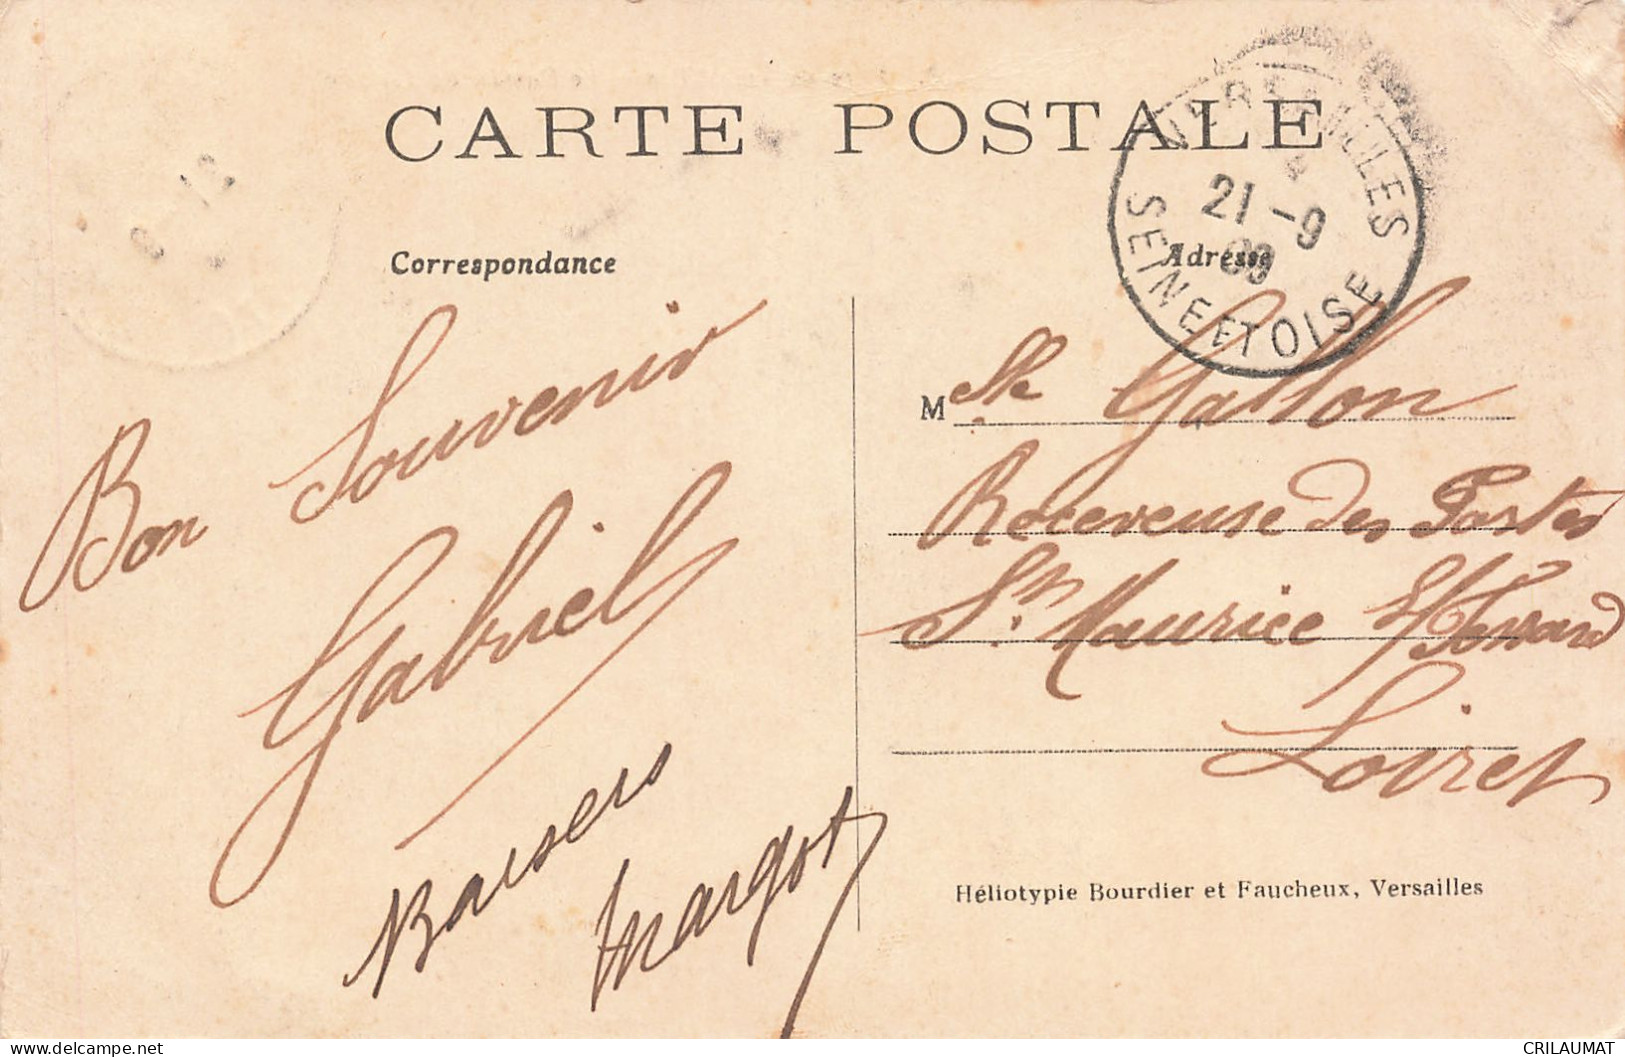 CARTE POSTALE
Correspondance
Adresse
VERSAILLES
21 - 9
09
SEINE ET OISE
Bon Souvenir
Gabriel
Baisers
Margot
M elle Gallon
Receveuse des Postes
St. Maurice s/ Fessard
Loiret
Héliotypie Bourdier et Faucheux, Versailles
www.delcampe.net
CRILAUMAT